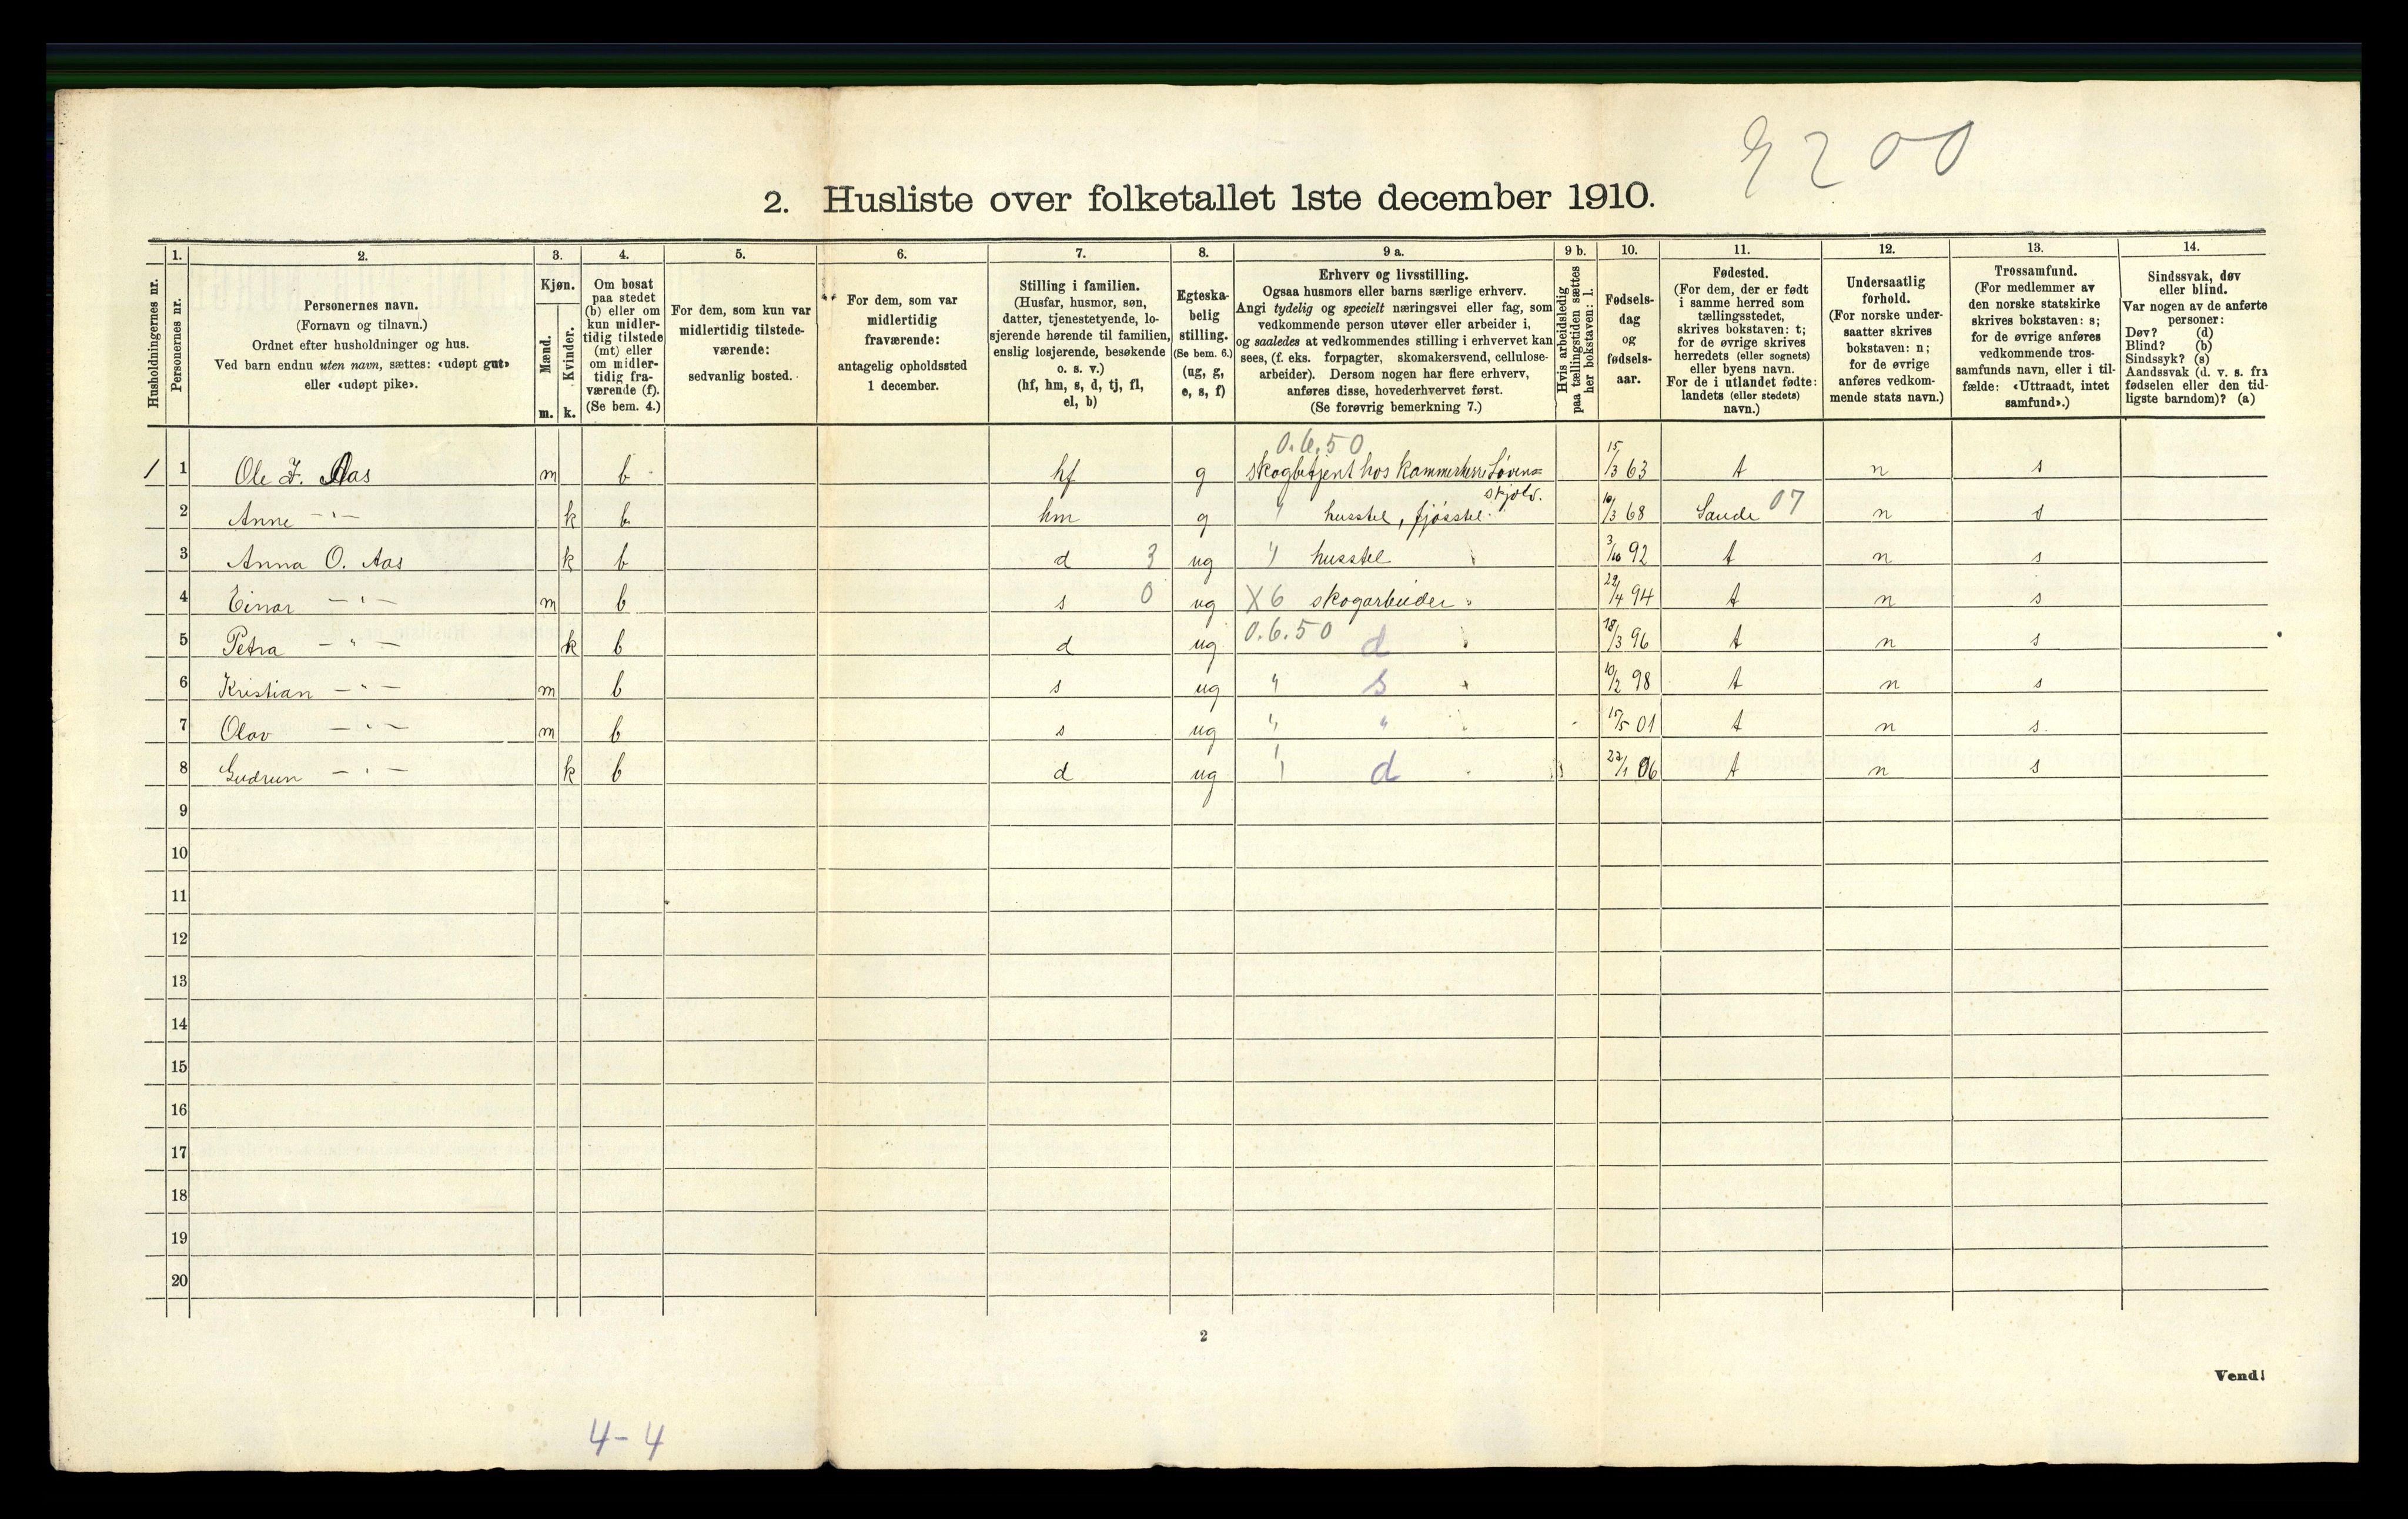 9200
2. Husliste over folketallet 1ste december 1910.
Husholdningernes nr.
1. Personernes nr.
2. Personernes navn.
(Fornavn og tilnavn.)
Ordnet efter husholdninger og hus.
Ved barn endnu uten navn, sættes: «udøpt gut»
eller «udøpt pike».
3. Kjøn.
Mænd. m.
Kvinder. k.
4. Om bosat
paa stedet
(b) eller om
kun midler-
tidig tilstede
(mt) eller
om midler-
tidig fra-
værende (f).
(Se bem. 4.)
5. For dem, som kun var
midlertidig tilstede-
værende:
sedvanlig bosted.
6. For dem, som var
midlertidig
fraværende:
antagelig opholdssted
1 december.
7. Stilling i familien.
(Husfar, husmor, søn,
datter, tjenestetyende, lo-
sjerende hørende til familien,
enslig losjerende, besøkende
o. s. v.)
(hf, hm, s, d, tj, fl,
el, b)
8. Egteska-
belig
stilling.
(Se bem. 6.)
(ug, g,
e, s, f)
9 a. Erhverv og livsstilling.
Ogsaa husmors eller barns særlige erhverv.
Angi tydelig og specielt næringsvei eller fag, som
vedkommende person utøver eller arbeider i,
og saaledes at vedkommendes stilling i erhvervet kan
sees, (f. eks. forpagter, skomakersvend, cellulose-
arbeider). Dersom nogen har flere erhverv,
anføres disse, hovederhvervet først.
(Se forøvrig bemerkning 7.)
9 b. Hvis arbeidsledig
paa tællingstiden sættes
her bokstaven: l.
10. Fødsels-
dag
og
fødsels-
aar.
11. Fødested.
(For dem, der er født
i samme herred som
tællingsstedet,
skrives bokstaven: t;
for de øvrige skrives
herredets (eller sognets)
eller byens navn.
For de i utlandet fødte:
landets (eller stedets)
navn.)
12. Undersaatlig
forhold.
(For norske under-
saatter skrives
bokstaven: n;
for de øvrige
anføres vedkom-
mende stats navn.)
13. Trossamfund.
(For medlemmer av
den norske statskirke
skrives bokstaven: s;
for de øvrige anføres
vedkommende tros-
samfunds navn, eller i til-
fælde: «Uttraadt, intet
samfund».)
14. Sindssvak, døv
eller blind.
Var nogen av de anførte
personer:
Døv? (d)
Blind? (b)
Sindssyk? (s)
Aandssvak (d. v. s. fra
fødselen eller den tid-
ligste barndom)? (a)
0.6.50
1 1 Ole J. Aas m b hf g skogbetjent hos Kammerherre Løven= 15/3 63 t n s
skjold.
2 Anne -"- k b hm g " husstel, fjøsstel 10/3 68 Sande 07 n s
3 Anna O. Aas k b d 3 ug " husstel 3/10 92 t n s
4 Einar -"- m b s 0 ug X6 skogarbeider 29/4 94 t n s
5 Petra -"- k b d ug 0.6.50 d 18/3 96 t n s
6 Kristian -"- m b s ug " s 10/2 98 t n s
7 Olav -"- m b s ug " " 15/5 01 t n s
8 Gudrun -"- k b d ug " d 22/1 06 t n s
9
10
11
12
13
14
15
16
17
18
19
20
2
Vend!
4-4